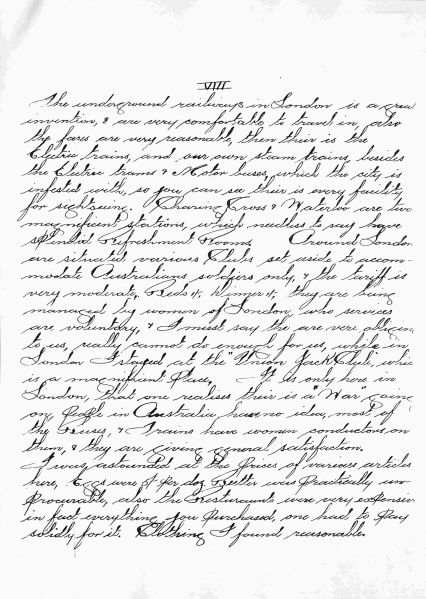 VIII
The underground railways in London is a grea
invention, & are very comfortable to travel in, also
the fares are very reasonable, then their is the
Electric trains, and our own steam trains, besides
the Electric trams & Motor buses, which the city is
infested with, so you can see their is every facility
for sightseeing. Charing Cross & Waterloo are two
magnificent stations, which needless to say have
splendid Refreshment Rooms Around London
are situated various Clubs set aside to accom-
modate Australians soldiers only, & the tariff is
very moderate, Beds 1/, Dinner 1/, they are being
managed by women of London, who services
are voluntary, & I must say the are very
to us, really cannot do enough for us, while in
London I stayed at the "Union Jack Club", whic
is a magnificent Place, It is only here in
London, that one realises their is a "War" going
on, People in Australia have no idea, most of
the Buses, & Trains have women conductors on
them, & they are giving general satisfaction.
I was astounded at the Prices of various articles
here, Eggs were per doz Butter was Practically un-
procurable, also the Resturaunts were very expensiv
in fact everything you Purchased, one had to Pay
solidly for it. Clothing I found reasonable.